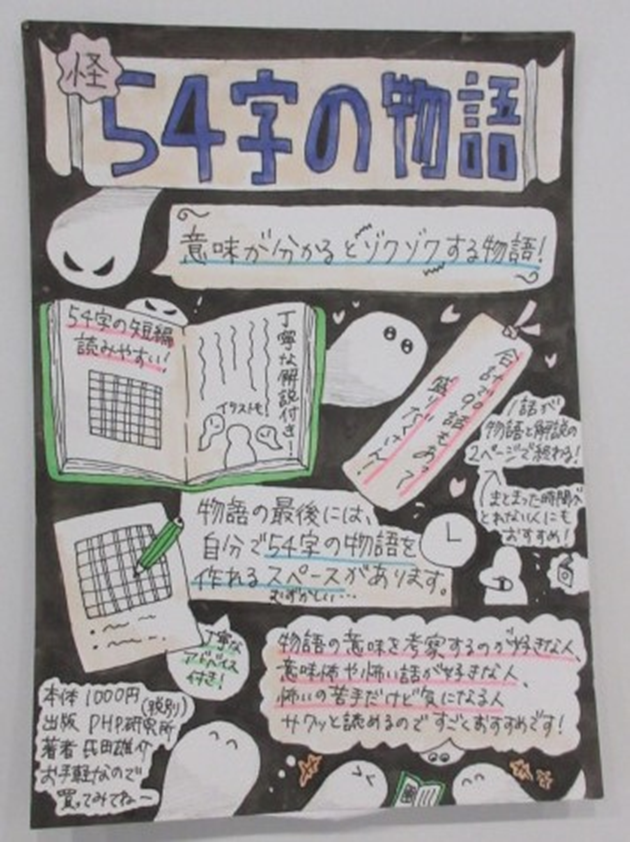 怪
54字の物語
意味が分かるとゾクゾクする物語!
54字の短編
読みやすい!
丁寧な解説付き!
イラストも!
合計で90話もあって
盛りだくさん!
1話が
物語と解説の
2ページで終わる!
まとまった時間が
とれない人にも
おすすめ!
物語の最後には、
自分で54字の物語を
作れるスペースがあります。
むずかしい…
丁寧な
アドバイス
付き!
物語の意味を考察するのが好きな人、
意味怖や怖い話が好きな人、
怖いの苦手だけど気になる人
サクッと読めるのですごくおすすめです!
本体 1000円(税別)
出版 PHP研究所
著者 氏田雄介
お手軽なので
買ってみてねー